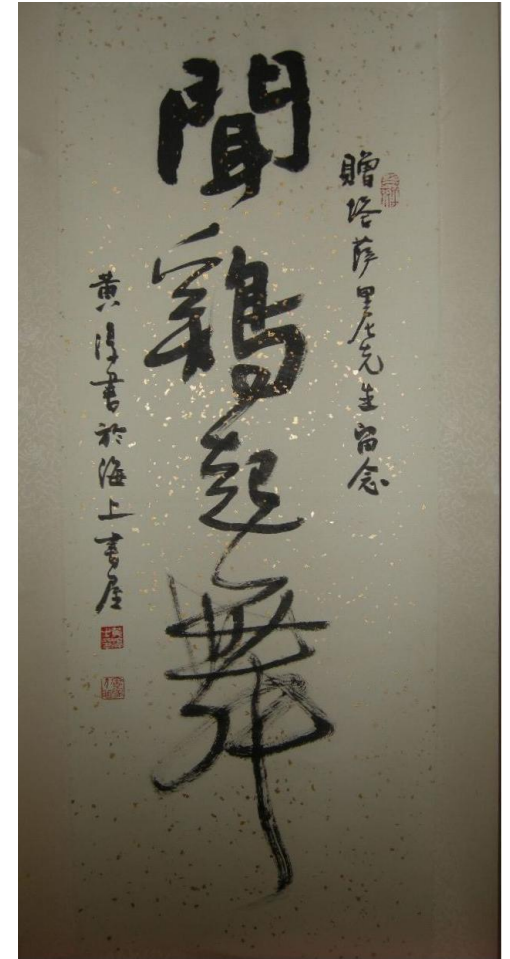 贈塔薩里尼先生留念
聞鷄起舞
黄淳書於海上書屋